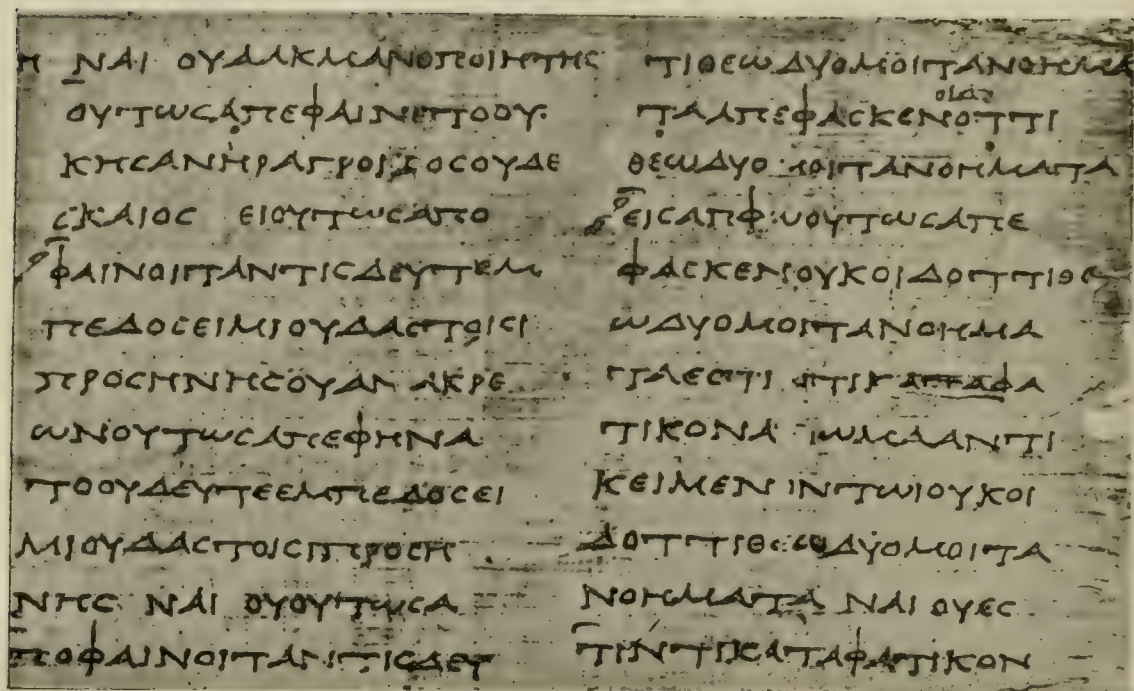 Η ΝΑΙ ΟΥΑΛΚΜΑΝΟΠΟΙΗΤΗC
ΟΥΤΩCΑΠΕΦΑΙΝΕΤΟΟΥ
ΚΗCΑΝΗΡΑΓΡΟΙΚΟCΟΥΔΕ
CΚΑΙΟC ΕΙΟΥΤΩCΑΠΟ
ΦΑΙΝΟΙΤΑΝΤΙCΔΕΥΤΕΜ
ΠΕΔΟCΕΙΜΙΟΥΔΑCΤΟΙCΙ
ΠΡΟCΗΝΗCΟΥΑΝΑΚΡΕ
ΩΝΟΥΤΩCΑΠΕΦΗΝΑ
ΤΟΟΥΔΕΥΤΕΕΜΠΕΔΟCΕΙ
ΜΙΟΥΔΑCΤΟΙCΠΡΟCΗ
ΝΗC ΝΑΙ ΟΥΟΥΤΩCΑ
ΠΟΦΑΙΝΟΙΤΑΝΤΙCΔΕΥΤ
ΤΙΘΕΩΔΥΟΜΟΙΤΑΝΟΗΜΑ
ΤΑΑΠΕΦΑCΚΕΝΟΤΤΙ
ΘΕΩΔΥΟΜΟΙΤΑΝΟΗΜΑΤΑ
ΕΙCΑΠΦΩΟΥΤΩCΑΠΕ
ΦΑCΚΕΝΟΥΚΟΙΔΟΤΤΙΘΕ
ΩΔΥΟΜΟΙΤΑΝΟΗΜΑ
ΤΑΕCΤΙ ΤΙΚΑΤΑΦΑ
ΤΙΚΟΝΑΞΙΩΜΑΑΝΤΙ
ΚΕΙΜΕΝΟΝΤΩΙΟΥΚΟΙ
ΔΟΤΤΙΘΕΩΔΥΟΜΟΙΤΑ
ΝΟΗΜΑΤΑ ΝΑΙ ΟΥΕC
ΤΙΝΤΙΚΑΤΑΦΑΤΙΚΟΝ